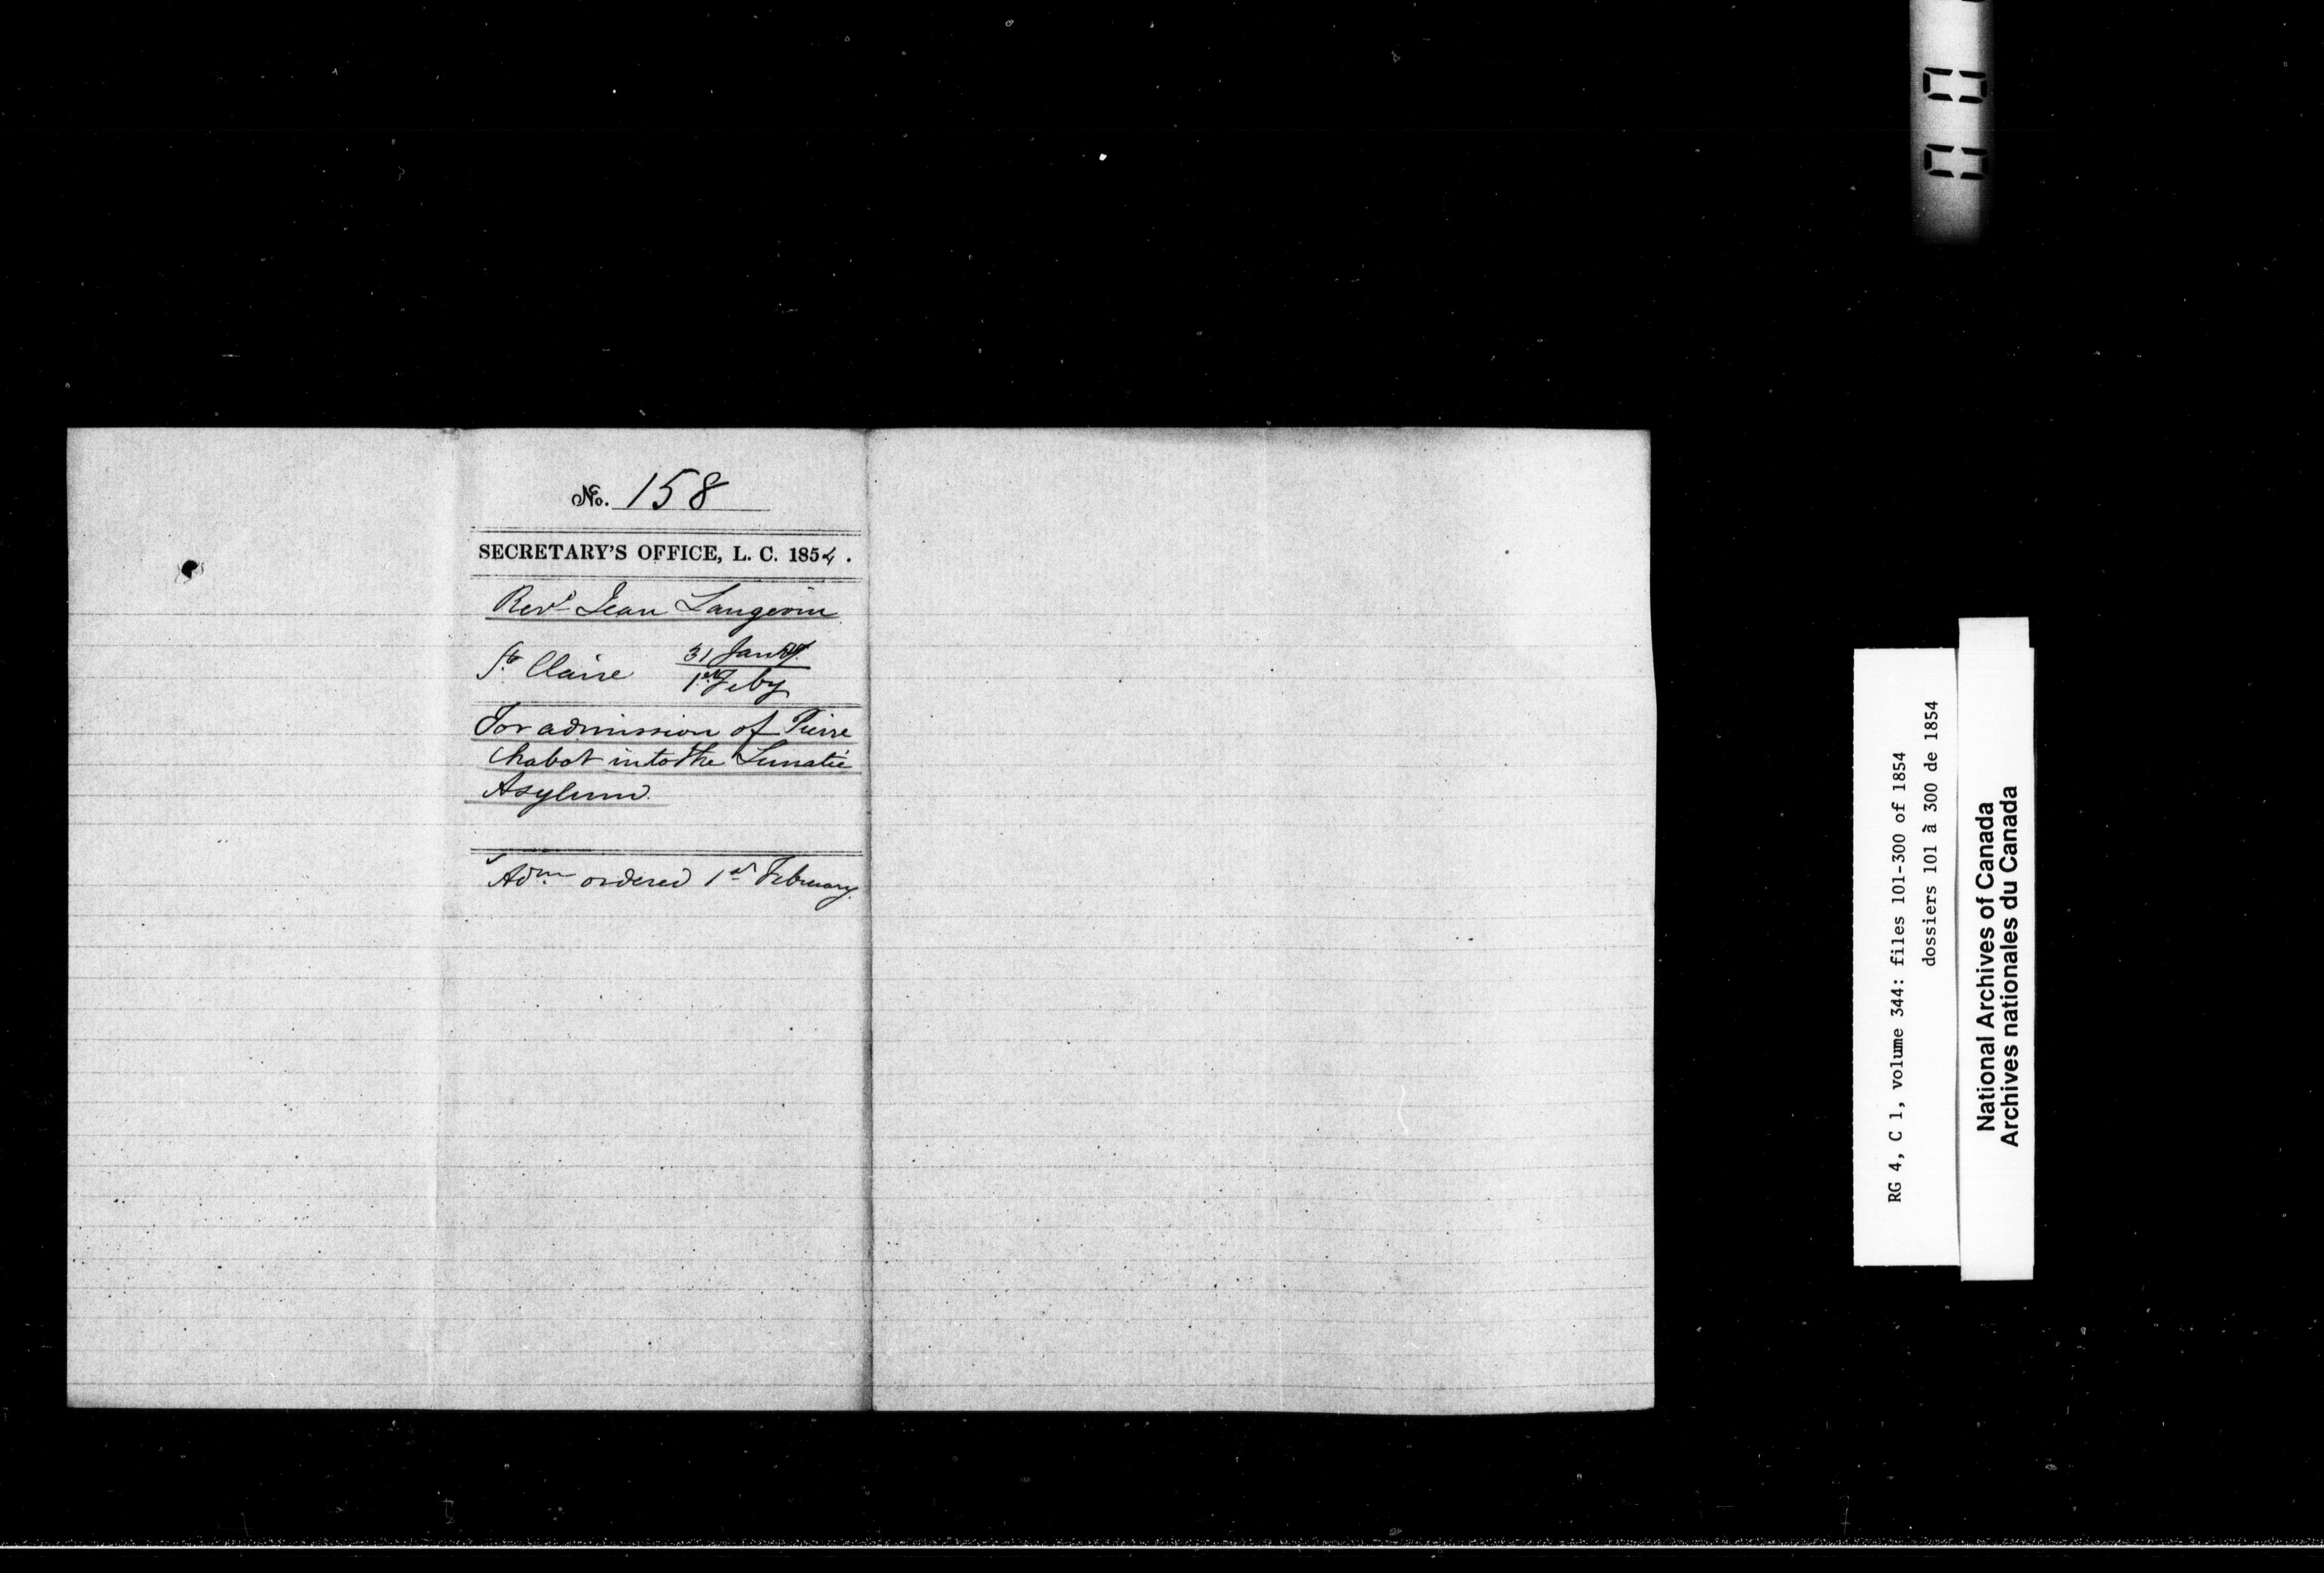 No. 158
SECRETARY'S OFFICE, L. C. 1854.
Revd Jean Langevin
Ste Claire 31 Jany.
1st Feby
For admission of Pierre
Chabot into the Lunatic
Asylum.
Admn ordered 1st February.
RG 4, C 1, volume 344: files 101-300 of 1854
dossiers 101 à 300 de 1854
National Archives of Canada
Archives nationales du Canada